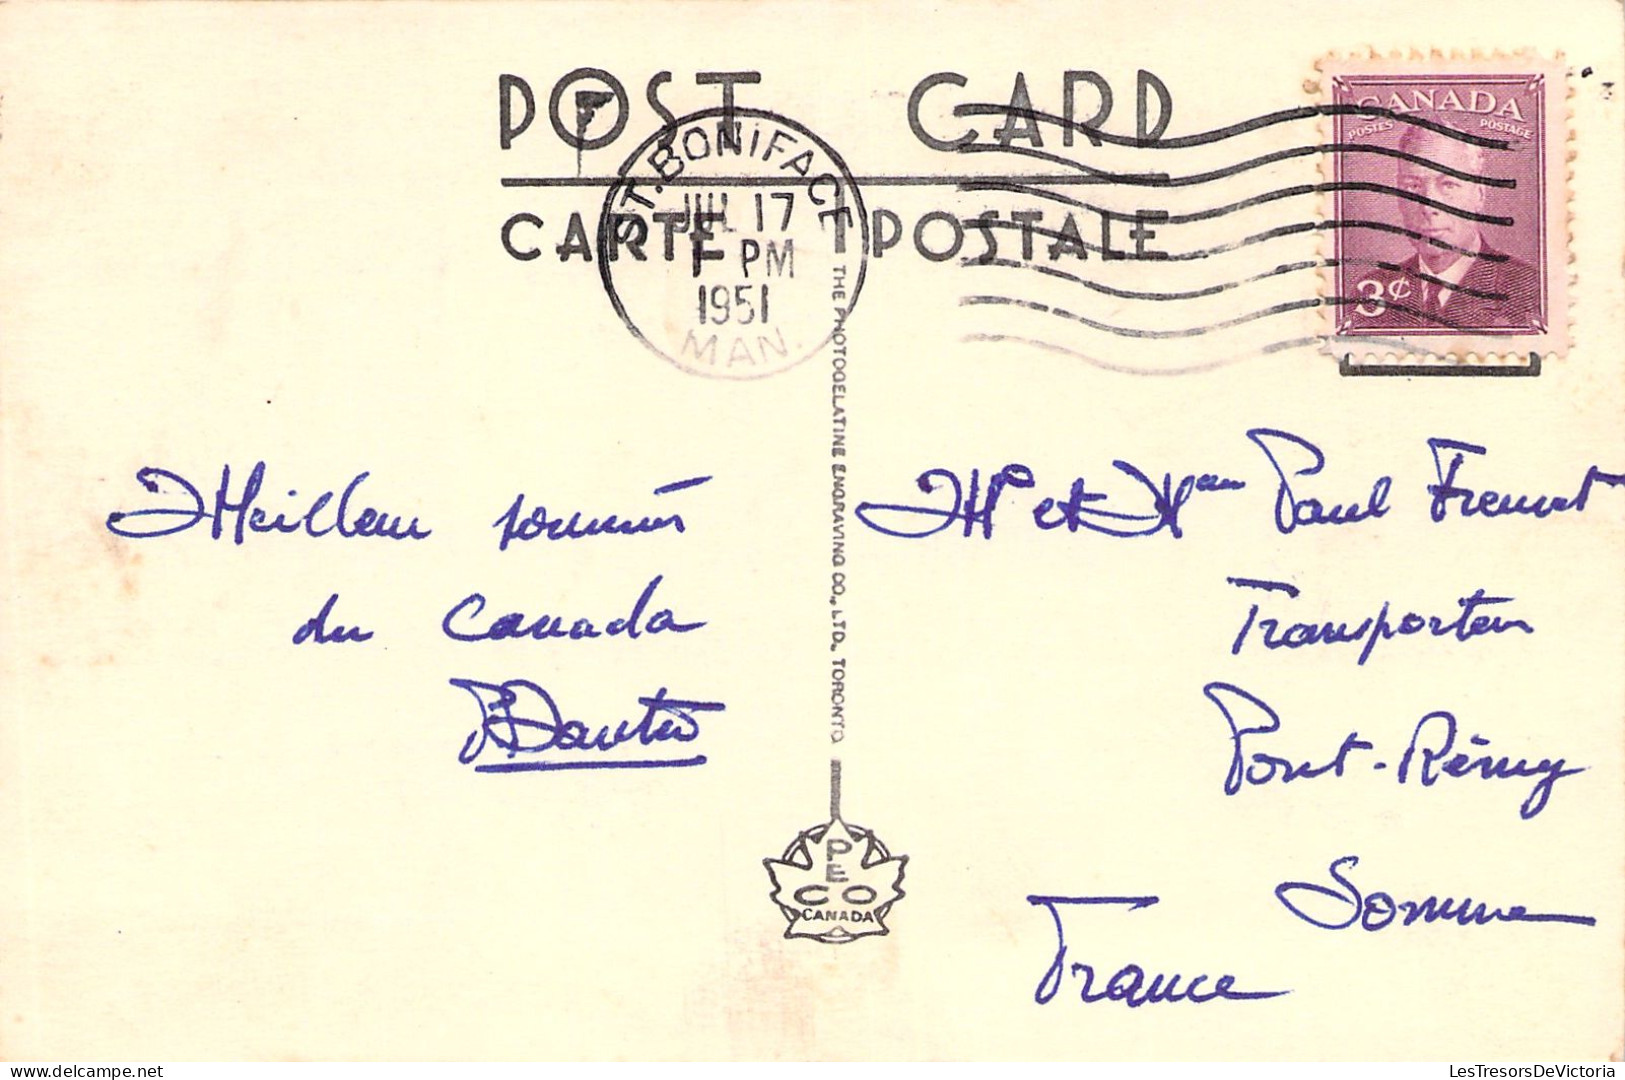 POST CARD
CARTE POSTALE
ST. BONIFACE
JUL 17
1 PM
1951
MAN.
CANADA
POSTES POSTAGE
3¢
THE PHOTOGELATINE ENGRAVING CO., LTD., TORONTO
Meilleur souvenir
du Canada
Mr et Mme Paul Fremont
Transporteur
Pont-Rémy
Somme
France
PECO
CANADA
LesTresorsDeVictoria